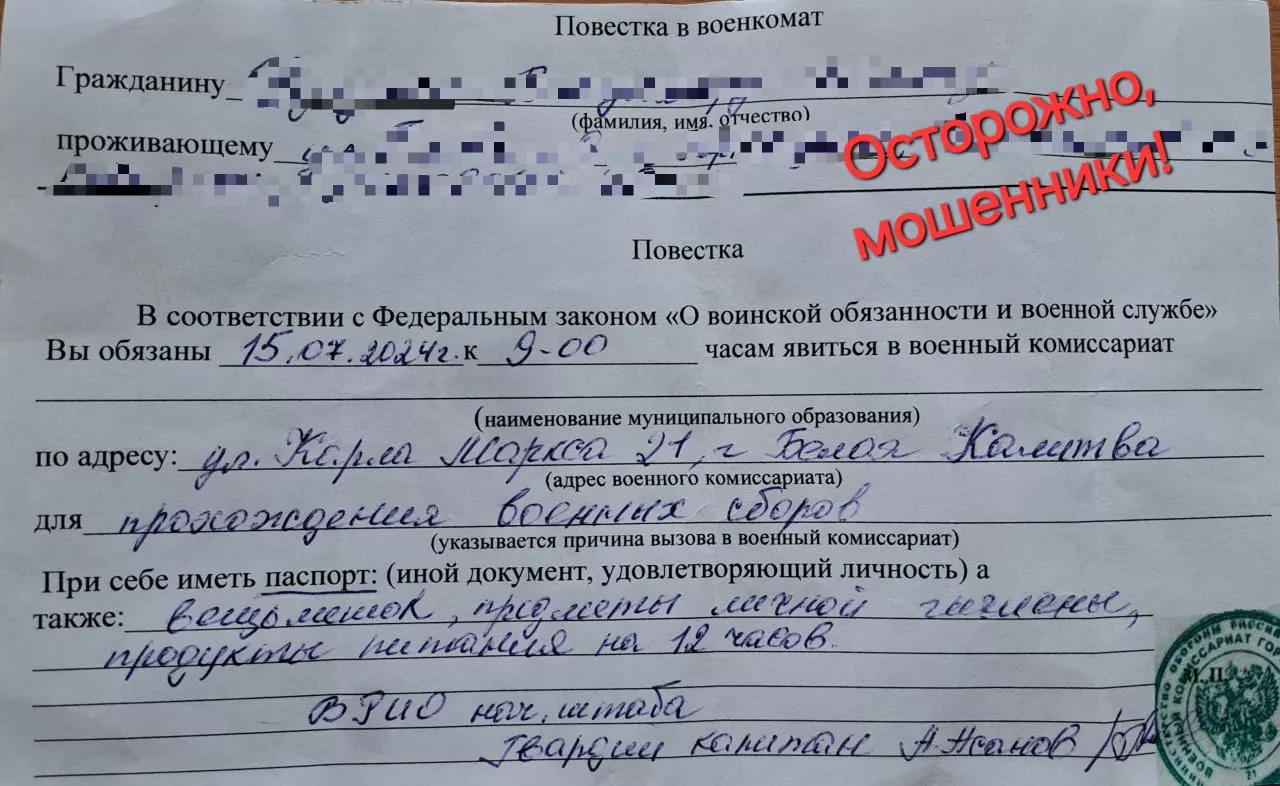 Повестка в военкомат
Гражданину
(фамилия, имя, отчество)
Осторожно,
мошенники!
проживающему
Повестка
В соответствии с Федеральным законом «О воинской обязанности и военной службе»
Вы обязаны 15.07.2024г. к 9-00 часам явиться в военный комиссариат
(наименование муниципального образования)
по адресу: ул. Карла Маркса 21, г Белая Калитва
(адрес военного комиссариата)
для прохождения военных сборов
(указывается причина вызова в военный комиссариат)
При себе иметь паспорт: (иной документ, удовлетворяющий личность) а
также: вещьмешок, предметы личной гигиены,
продукты питания на 12 часов.
М.П.
ВРИО нач. штаба
Гвардии капитан А.Жанов